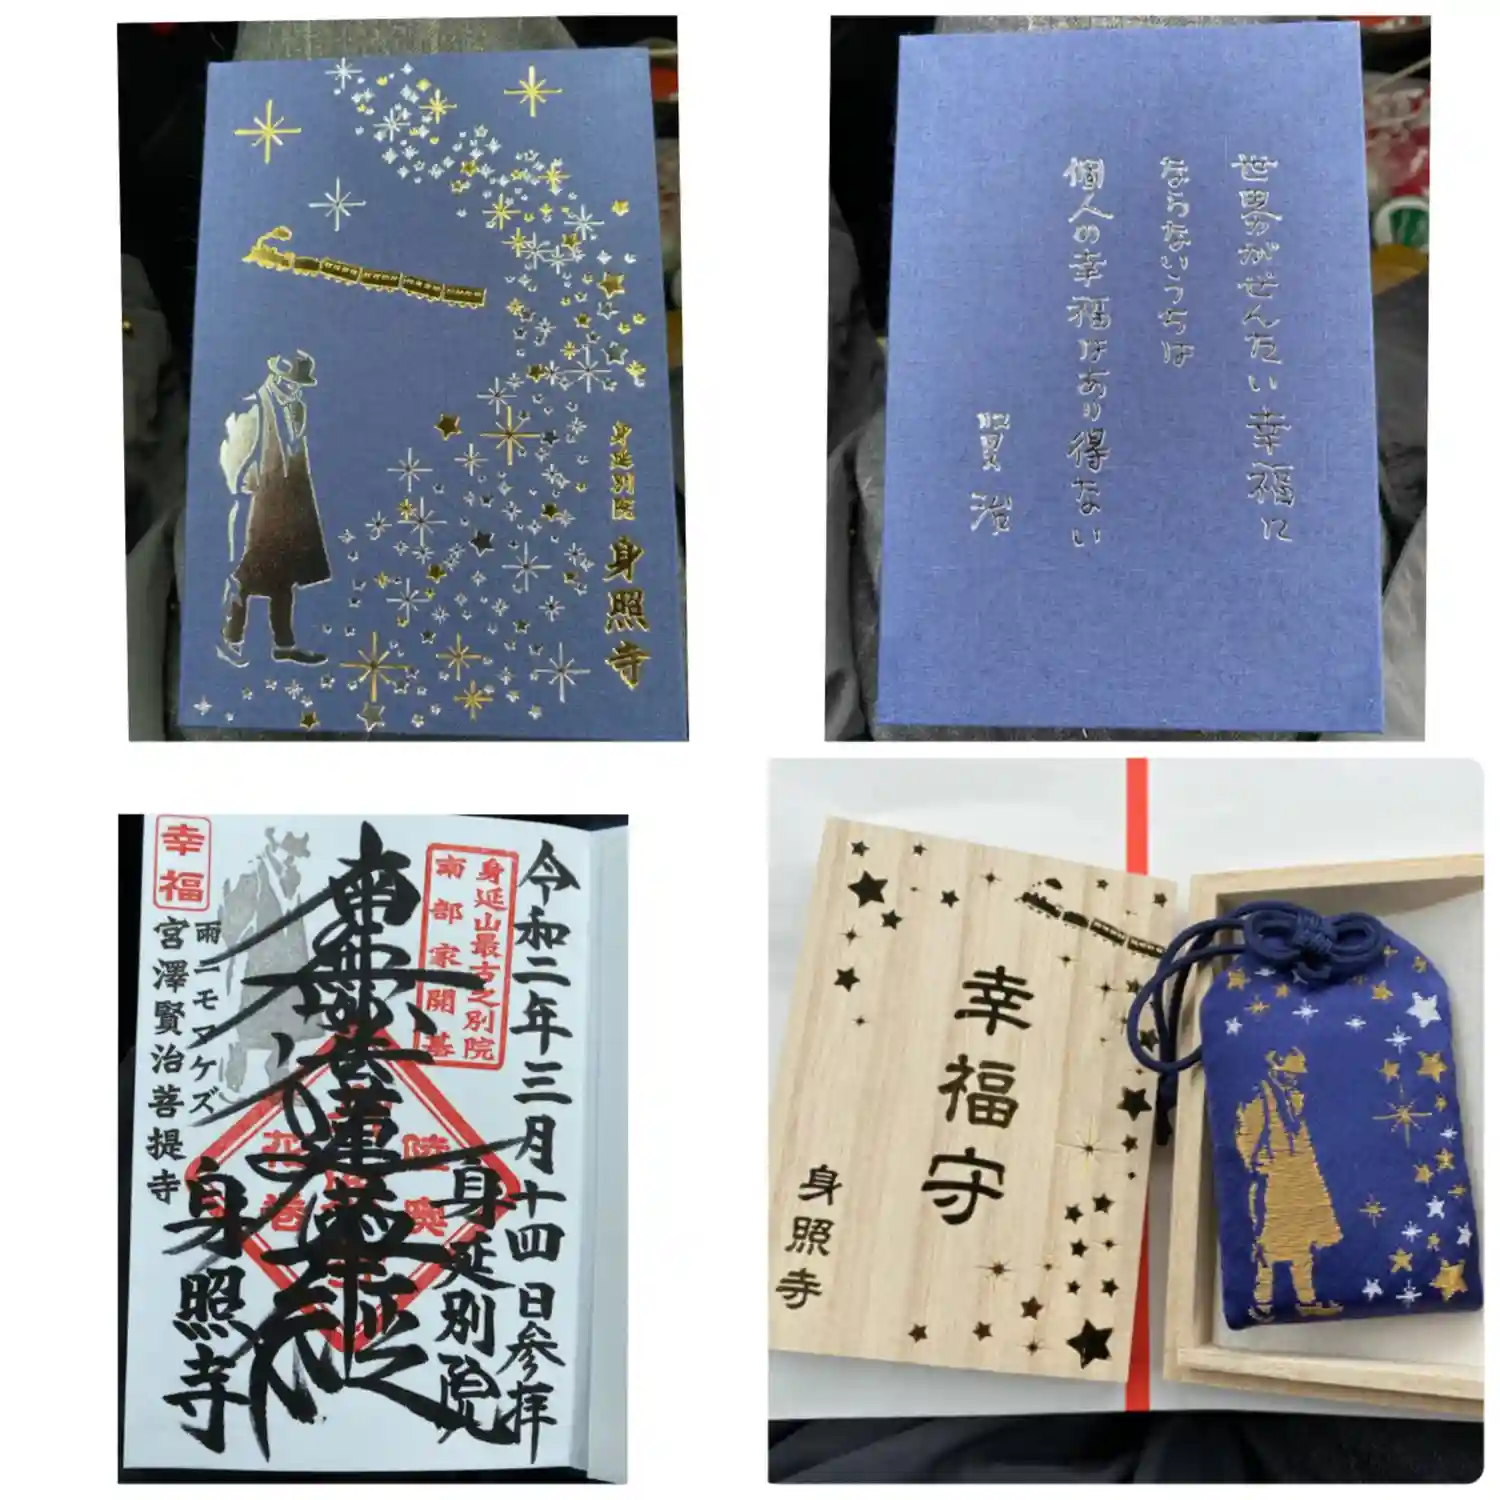 身延別院
身照寺
世界がぜんたい幸福に
ならないうちは
個人の幸福はあり得ない
賢治
令和二年三月十四日参拝
身延山最古之別院
南部家開基
南無妙法蓮華経
陸奥
花巻
身延別院
身照寺
幸福
雨ニモマケズ
宮澤賢治菩提寺
幸福守
身照寺